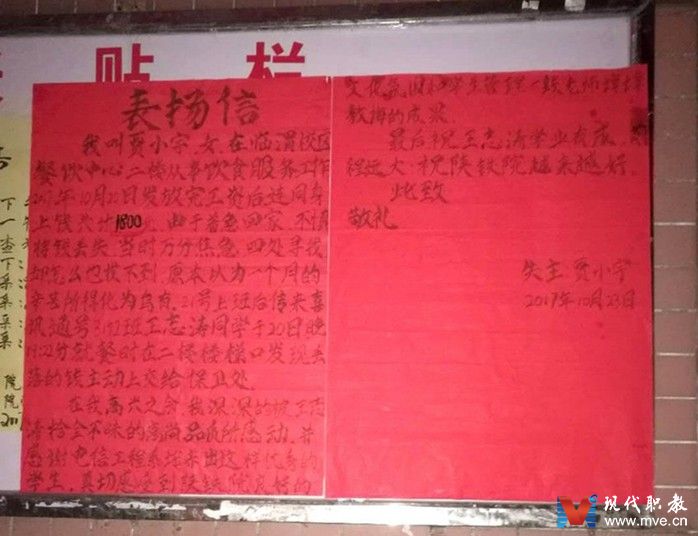 贴栏
表扬信
我叫贾小宁,女,在临渭校区
餐饮中心二楼从事饮食服务工作
2017年10月20日发放完工资后连同身
上钱共计1800元,由于着急回家,不慎
将钱丢失,当时万分焦急,四处寻找
却怎么也找不到,原本以为一个月的
辛苦所得化为乌有,21号上班后传来喜
讯通号3152班王志涛同学于20日晚
19:22分就餐时在二楼楼梯口发现丢
落的钱主动上交给保卫处.
在我高兴之余,我深深的被王志
涛拾金不昧的高尚品质所感动,并
感谢电信工程系培养出这样优秀的
学生,真切感受到陕铁院良好的
文化氛围和学生管理
教诲的成果.
最后祝王志涛学业有成,
程远大!祝陕铁院越来越好.
此致
敬礼
失主 贾小宁
2017年10月23日
下
一
查
下
采
采
采
院
院
现代职教
www.mve.cn